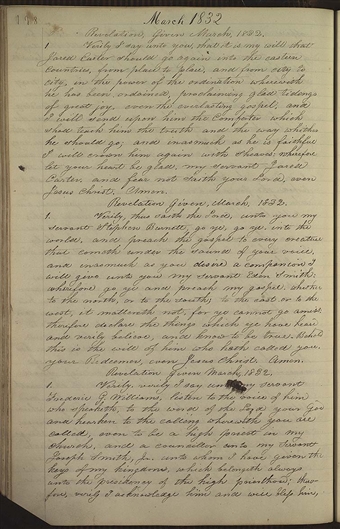 March 1832
Revelation, Given March, 1832.
1. Verily I say unto you, that it is my will that
Jared Carter should go again into the eastern
countries, from place to place, and from city to
city, in the power of the ordination wherewith
he has been ordained, proclaiming glad tidings
of great joy, even the everlasting gospel, and
I will send upon him the Comforter which
shall teach him the truth and the way whither
he should go; and inasmuch as he is faithful
I will crown him again with sheaves: wherefore
let your heart be glad, my servant Jared
Carter and fear not saith your Lord, even
Jesus Christ. Amen.
Revelation Given, March, 1832.
1. Verily, thus saith the Lord, unto you my
servant Stephen Burnett, go ye, go ye into the
world, and preach the gospel to every creature
that cometh under the sound of your voice,
and inasmuch as you desire a companion I
will give unto you my servant Eden Smith:
wherefore go ye and preach my gospel whether
to the north, or to the south; to the east or to the
west, it mattereth not, for ye cannot go amiss
therefore declare the things which ye have heard
and verily believe, and know to be true. Behold
this is the will of him who hath called you,
your Redeemer, even Jesus Christ. Amen.
Revelation Given March, 1832.
1. Verily, verily I say unto my servant
Frederic G. Williams, listen to the voice of him
who speaketh, to the word of the Lord your God
and hearken to the calling wherewith you are
called, even to be a high priest in my
church, and a counsellor unto my servant
Joseph Smith, Jr. unto whom I have given the
keys of my kingdom, which belongeth always
unto the presidency of the high priesthood; there
fore, verily I acknowledge him and will bless him,